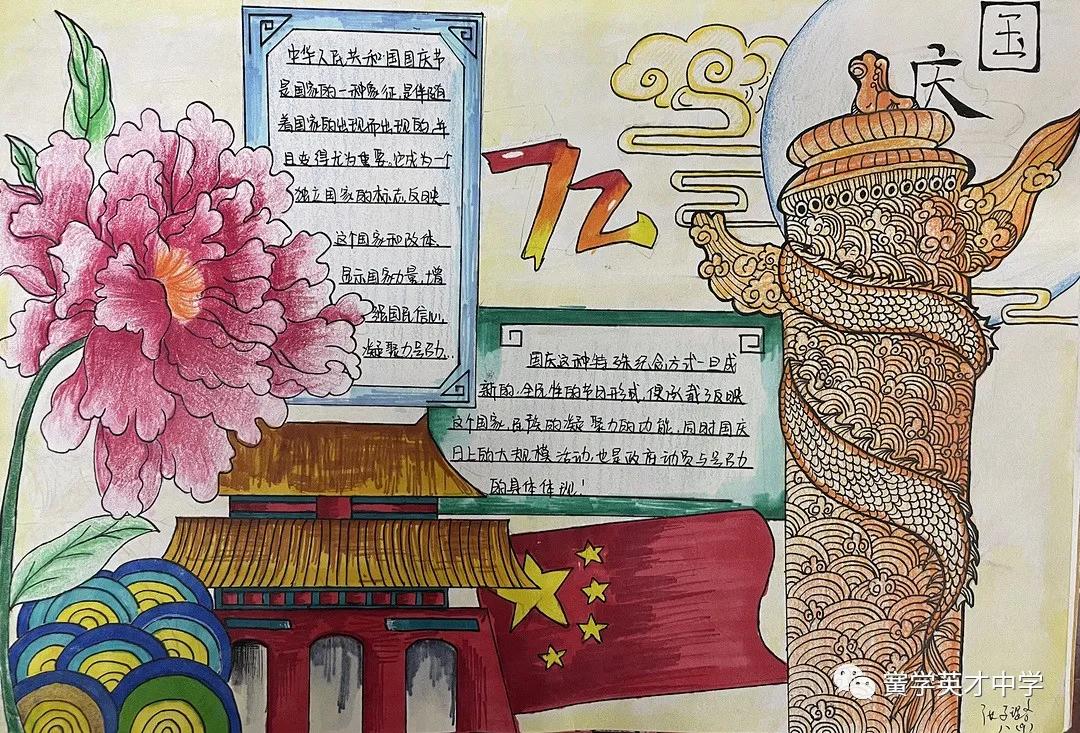 国庆
72
中华人民共和国国庆节
是国家的一种象征,是伴随
着国家的出现而出现的,并
且变得尤为重要,它成为一个
独立国家的标志反映
这个国家和政体、
显示国家力量、增
强国民信心,
凝聚力号召力...
国庆这种特殊纪念方式一旦成
新的、全民性的节日形式,便承载了反映
这个国家,民族的凝聚力的功能,同时国庆
日上的大规模活动,也是政府动员与号召力
的具体体现!
黉学英才中学
八(9)